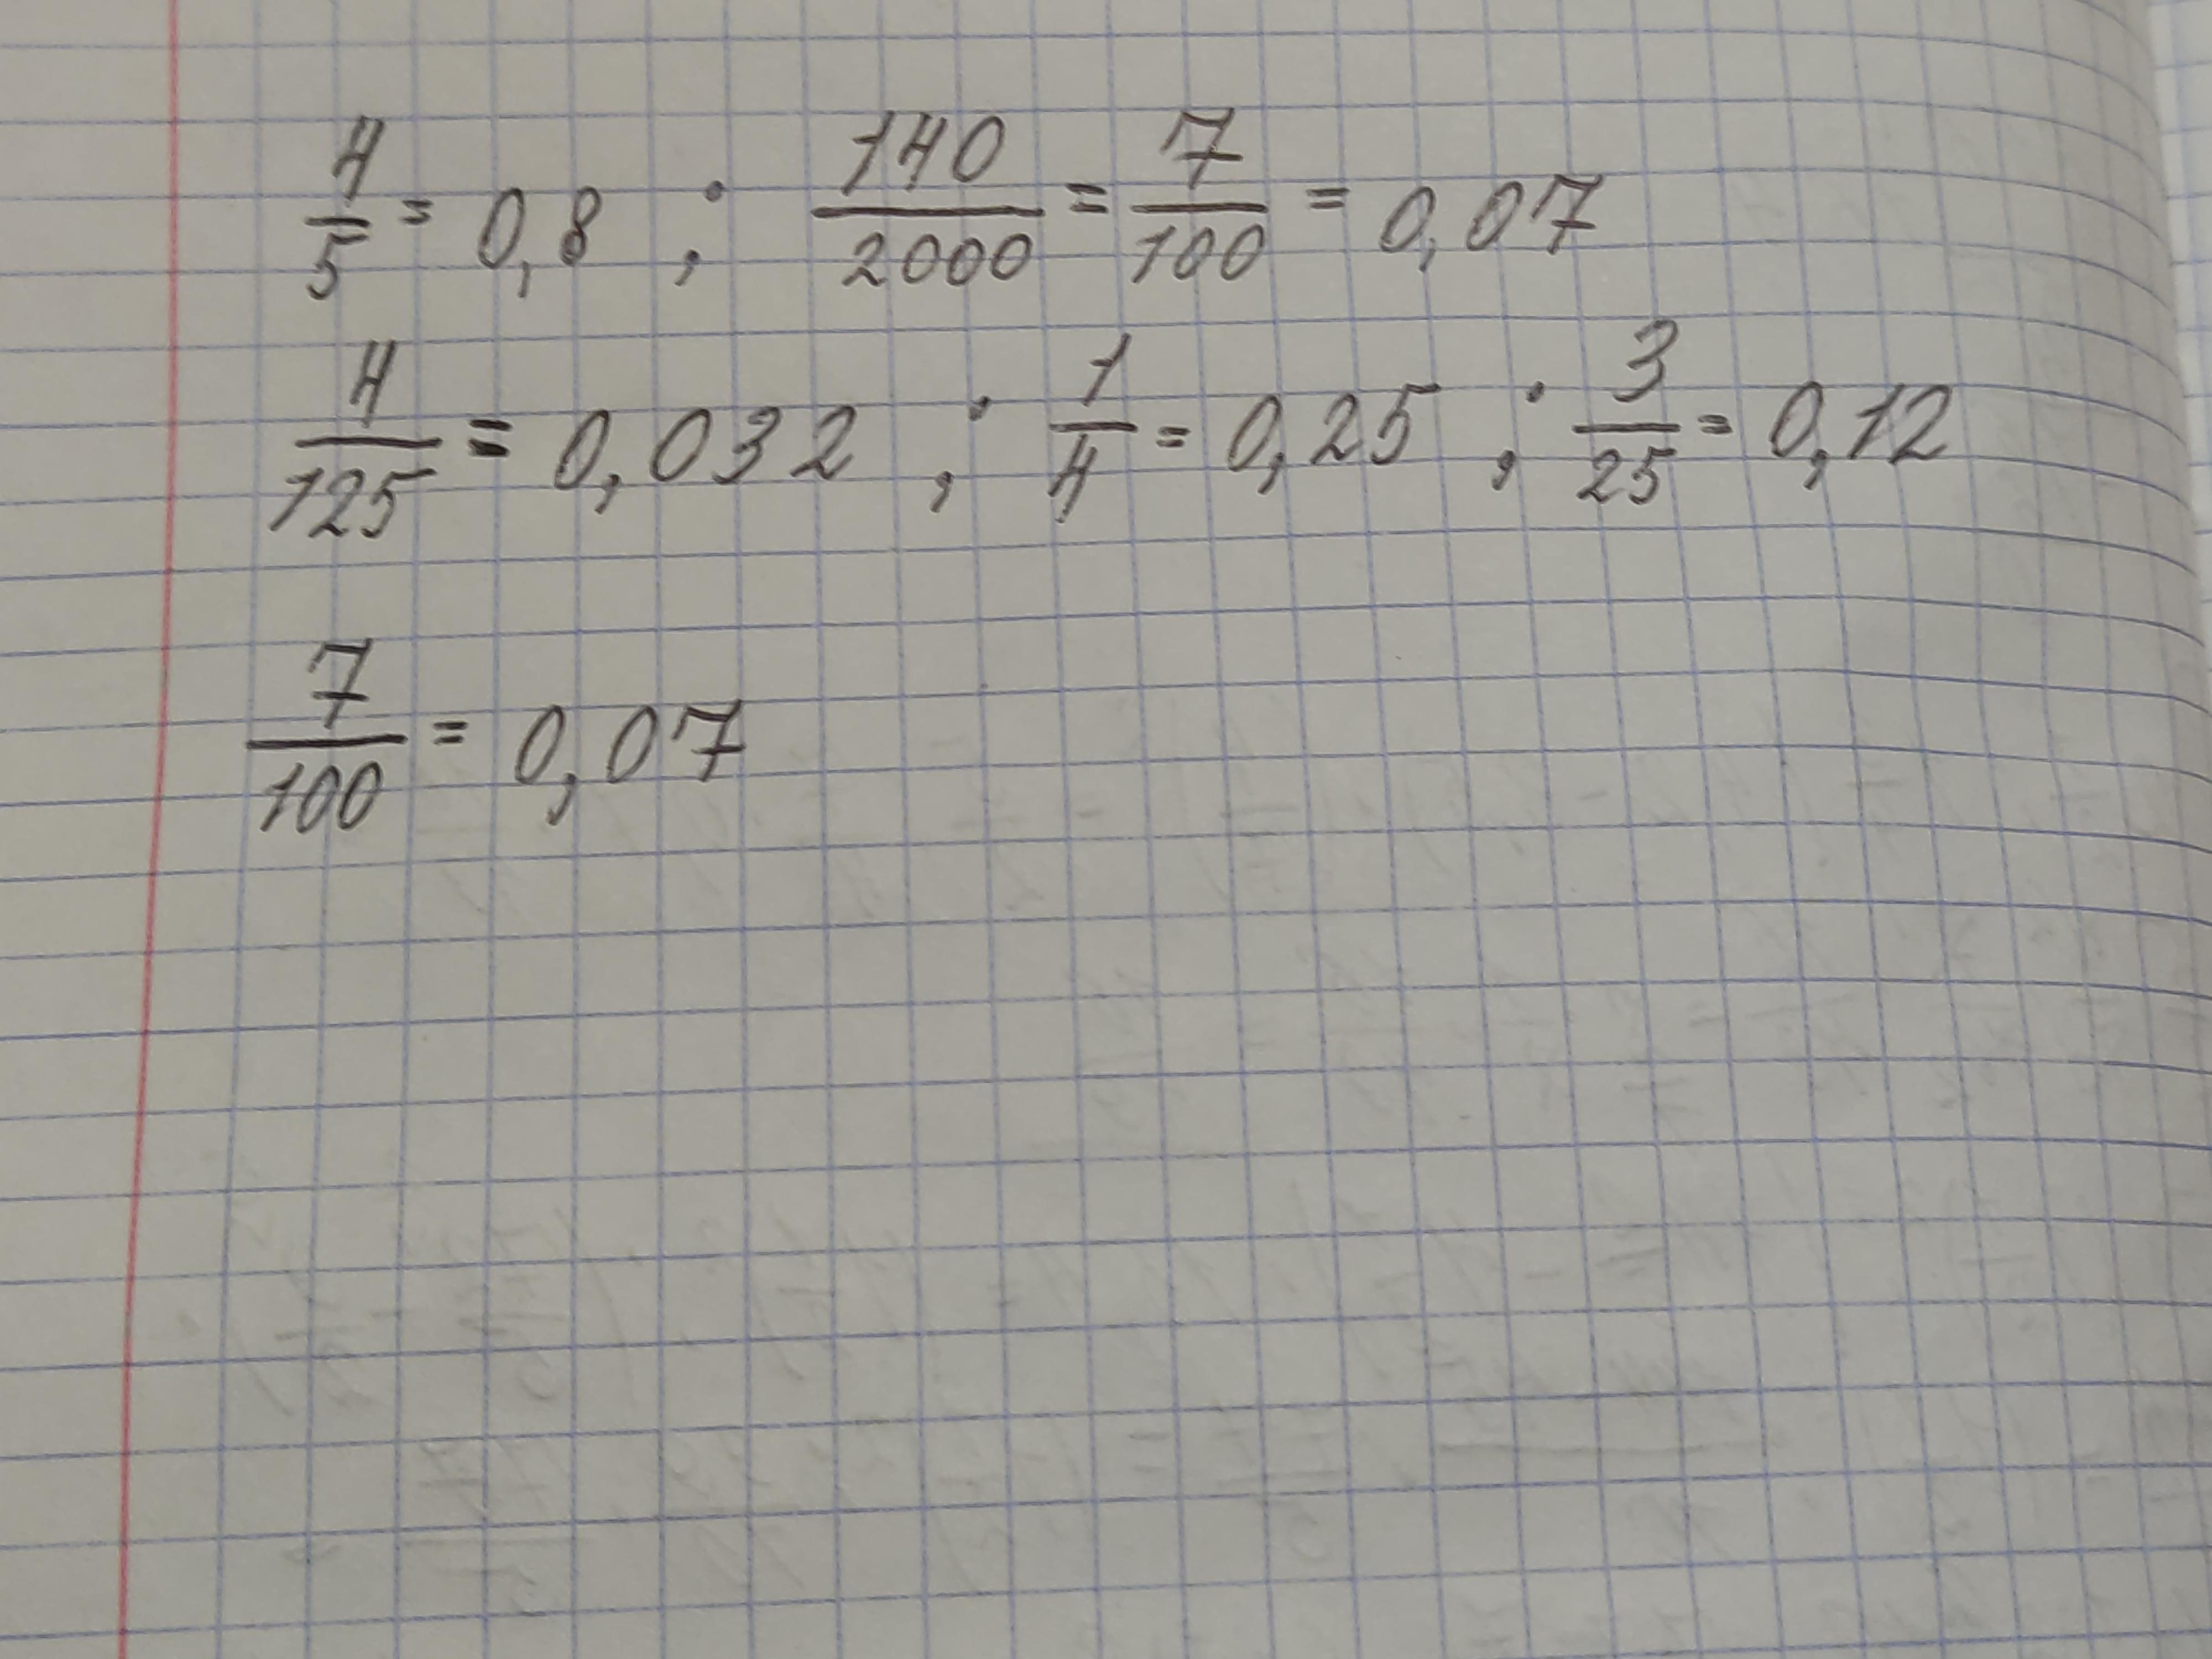 4/5 = 0,8 ; 140/2000 = 7/100 = 0,07
4/125 = 0,032 ; 1/4 = 0,25 ; 3/25 = 0,12
7/100 = 0,07